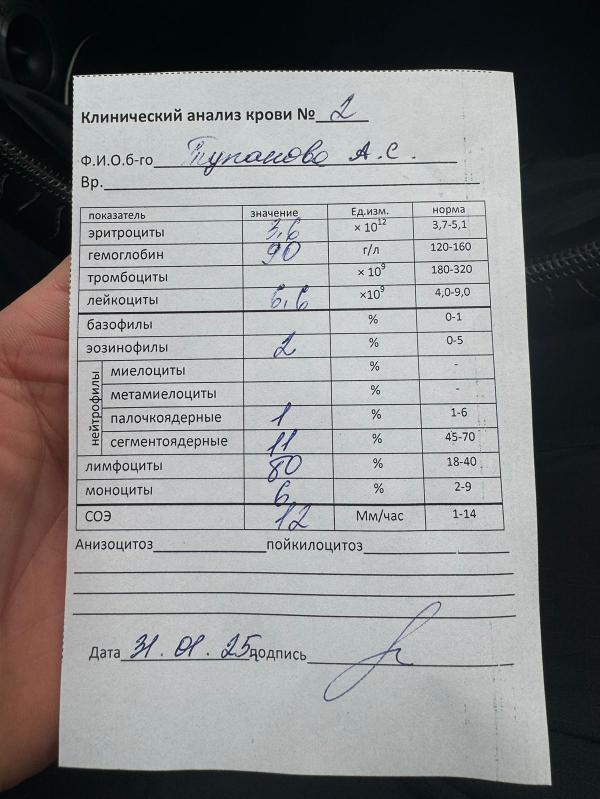 Клинический анализ крови № 2
Ф.И.О.б-го Тупаново А.С.
Вр.
показатель значение Ед.изм. норма
эритроциты 3,6 × 10¹² 3,7-5,1
гемоглобин 90 г/л 120-160
тромбоциты × 10⁹ 180-320
лейкоциты 6,6 ×10⁹ 4,0-9,0
базофилы % 0-1
эозинофилы 2 % 0-5
нейтрофилы
миелоциты % -
метамиелоциты % -
палочкоядерные 1 % 1-6
сегментоядерные 11 % 45-70
лимфоциты 80 % 18-40
моноциты 6 % 2-9
СОЭ 12 Мм/час 1-14
Анизоцитоз пойкилоцитоз
Дата 31.01.25 подпись